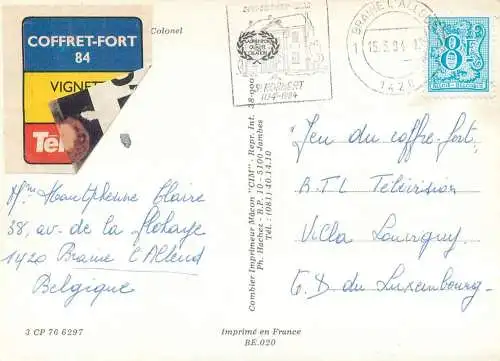 COFFRET-FORT
84
VIGNET
Tél
Colonel
St NORBERT
1134-1984
BRAINE L'ALLEUD
15.3.84
1420
8F
Mme Hautphenne Claire
38, av. de la
1420 Braine L'Alleud
Belgique
3 CP 76 6297
Combier Imprimeur Mâcon "CIM" - Repr. Int.
Ph. Hachez - B.P. 10 - 5100 Jambes
Tél.: (081) 40.14.10
Imprimé en France
BE.020
"Jeu du coffre-fort"
R.T.L Télévision
Villa Louvigny
G.D du Luxembourg.